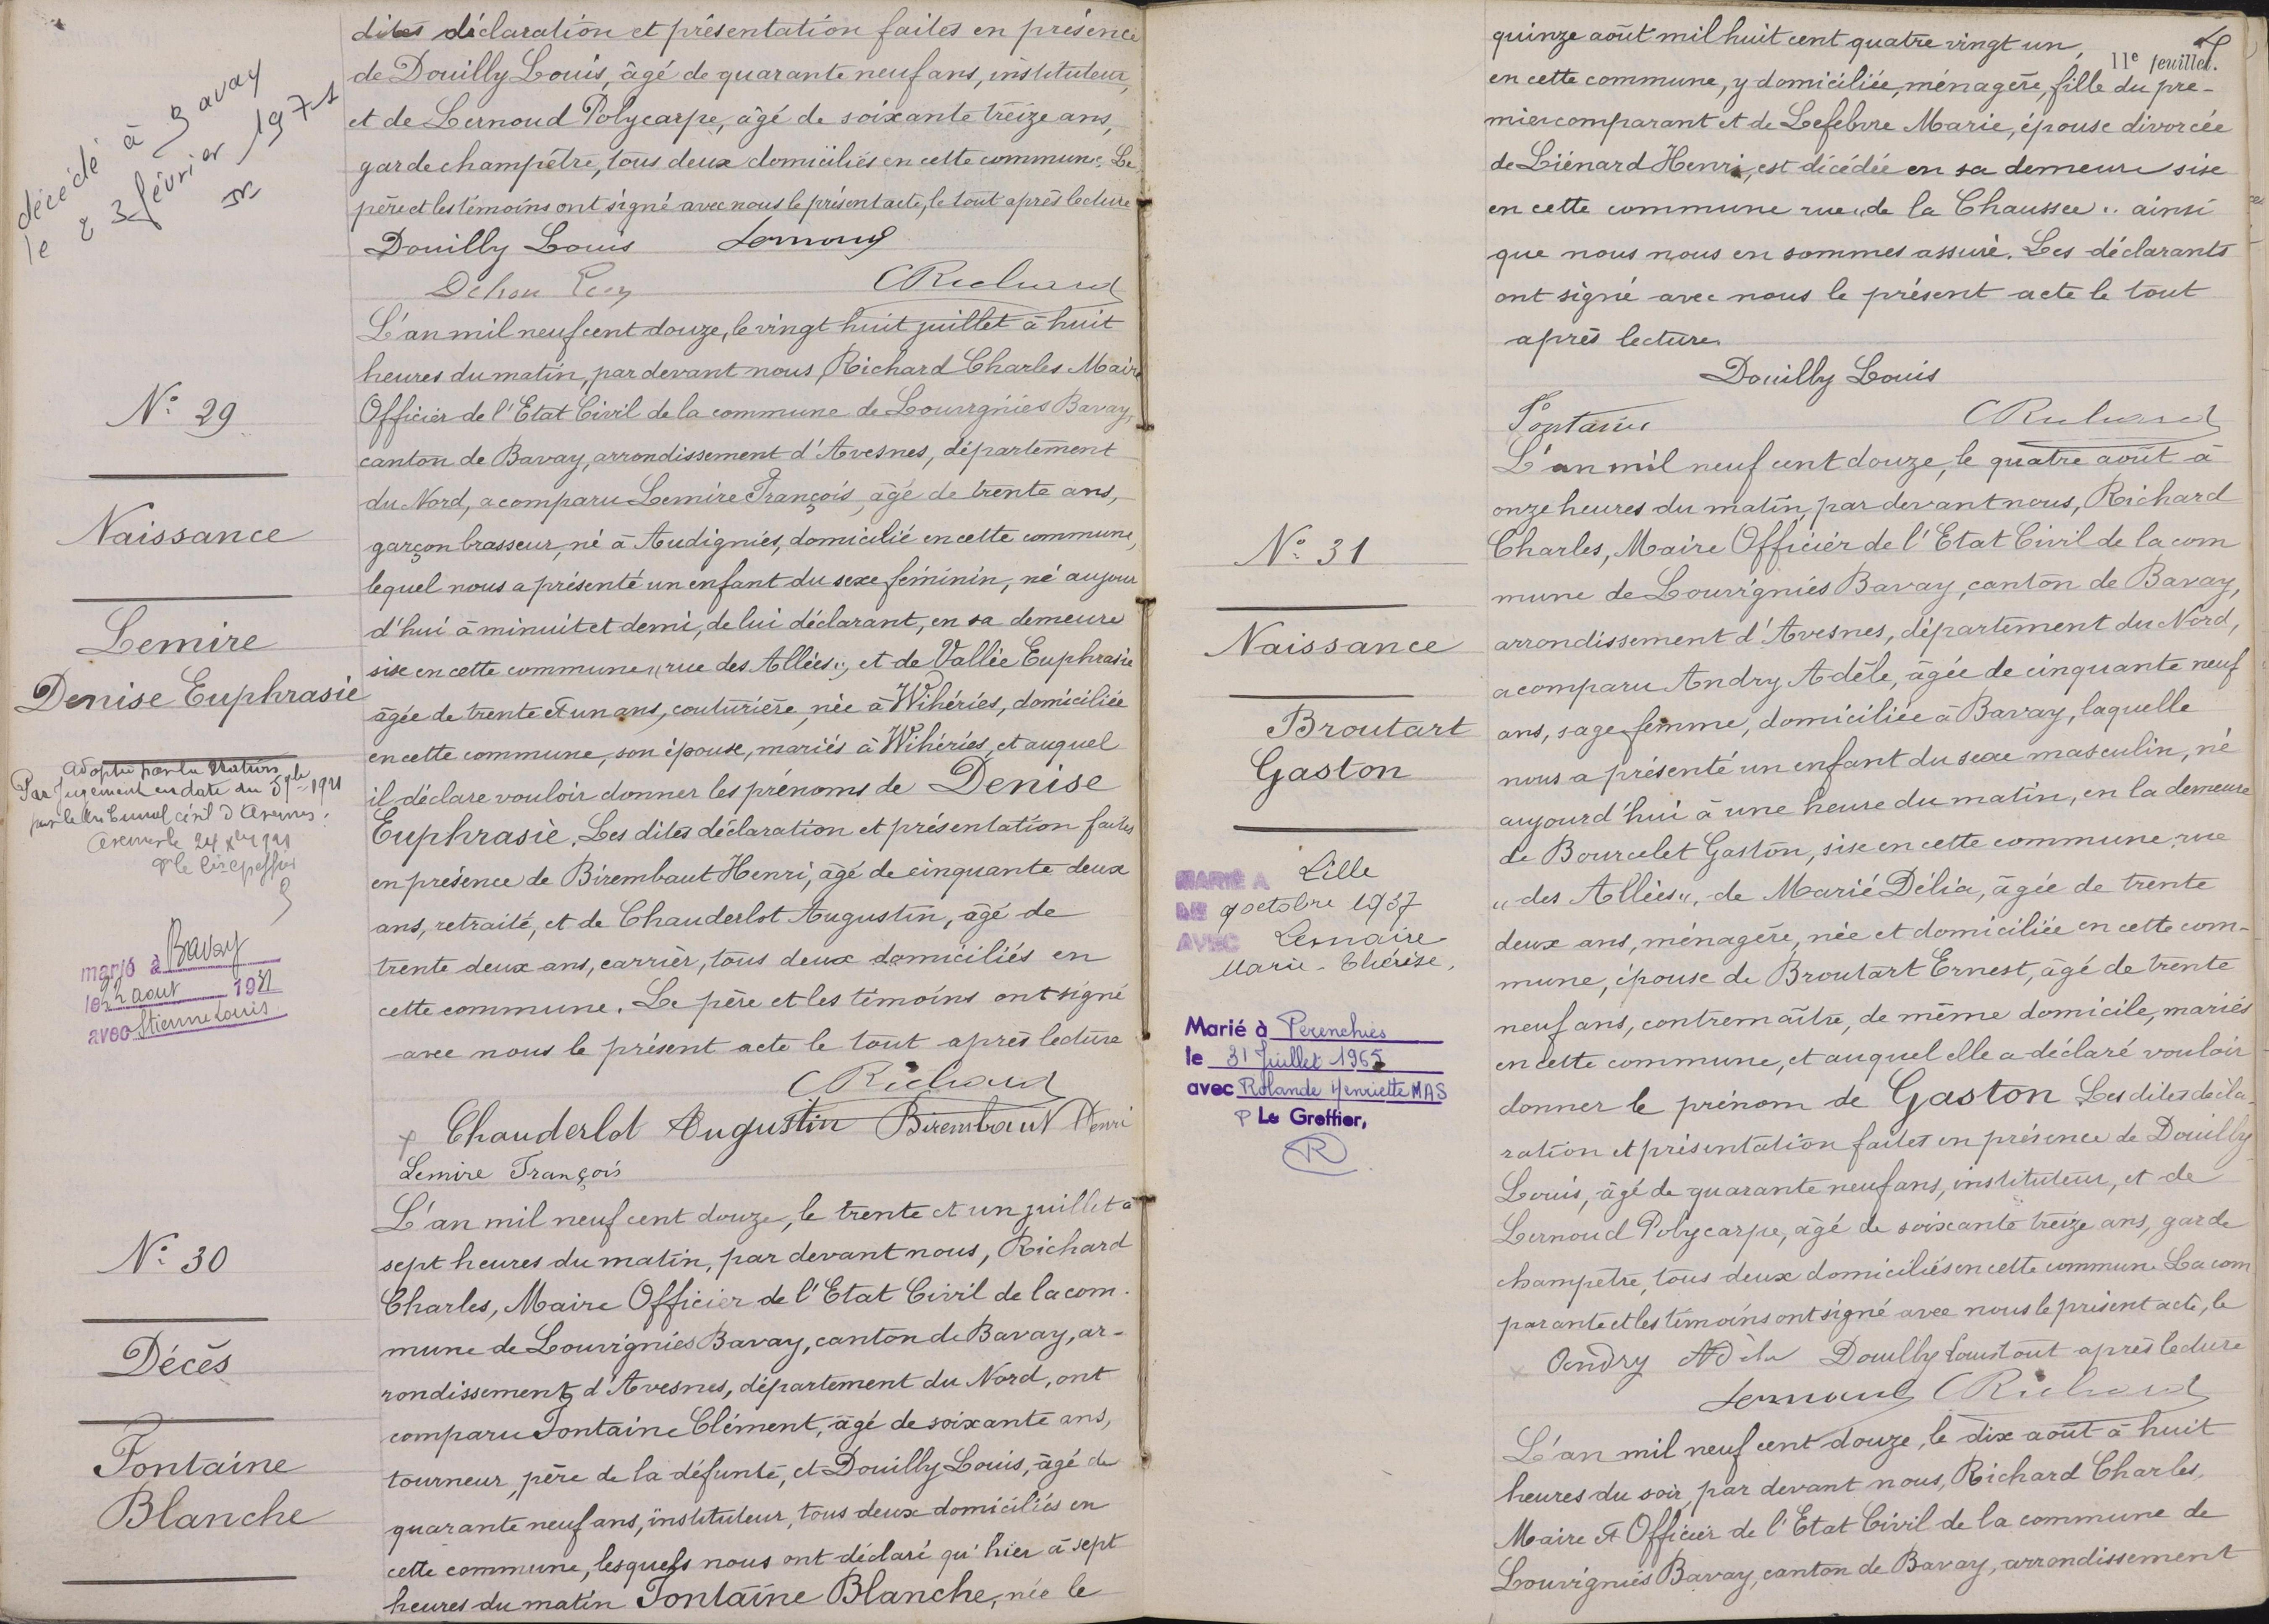 décédé à Bavay
le 23 février 1971
dites déclaration et présentation faites en présence
de Douilly Louis, âgé de quarante neuf ans, instituteur,
et de Lernoud Polycarpe, âgé de soixante treize ans,
garde champêtre, tous deux domiciliés en cette commune. Le
père et les témoins ont signé avec nous le présent acte, le tout après lecture
Douilly Louis Lernoud
Dehon CRichard
N° 29
Naissance
Lemire
Denise Euphrasie
Adoptée par la Nation
Par Jugement en date du 1921
par le tribunal civil d'Avesnes.
Avesnes le 24 Xbre 1921
marié à Bavay
le 22 aout 1931
avec Stienne Louis
L'an mil neuf cent douze, le vingt huit juillet à huit
heures du matin, par devant nous, Richard Charles Maire
Officier de l'Etat Civil de la commune de Louvignies Bavay,
canton de Bavay, arrondissement d'Avesnes, département
du Nord, a comparu Lemire François, âgé de trente ans,
garçon brasseur, né à Audignies, domicilié en cette commune,
lequel nous a présenté un enfant du sexe féminin, né aujour
d'hui à minuit et demi, de lui déclarant, en sa demeure
sise en cette commune "rue des Allées", et de Vallée Euphrasie
âgée de trente et un ans, couturière, née à Wihéries, domiciliée
en cette commune, son épouse, mariés à Wihéries, et auquel
il déclare vouloir donner les prénoms de Denise
Euphrasie. Les dites déclaration et présentation faites
en présence de Birembaut Henri, âgé de cinquante deux
ans, retraité, et de Chauderlot Augustin, âgé de
trente deux ans, carrier, tous deux domiciliés en
cette commune. Le père et les témoins ont signé
avec nous le présent acte le tout après lecture
CRichard
Chauderlot Augustin Birembaut Henri
Lemire François
N° 30
Décès
Fontaine
Blanche
L'an mil neuf cent douze, le trente et un juillet à
sept heures du matin, par devant nous, Richard
Charles, Maire Officier de l'Etat Civil de la com-
mune de Louvignies Bavay, canton de Bavay, ar-
rondissement d'Avesnes, département du Nord, ont
comparu Fontaine Clément, âgé de soixante ans,
tourneur, père de la défunte, et Douilly Louis, âgé de
quarante neuf ans, instituteur, tous deux domiciliés en
cette commune, lesquels nous ont déclaré qu'hier à sept
heures du matin Fontaine Blanche, née le
11e feuillet.
quinze août mil huit cent quatre vingt un,
en cette commune, y domiciliée, ménagère, fille du pre-
mier comparant et de Lefebvre Marie, épouse divorcée
de Liénard Henri, est décédée en sa demeure sise
en cette commune rue "de la Chaussée" ainsi
que nous nous en sommes assuré. Les déclarants
ont signé avec nous le présent acte le tout
après lecture
Douilly Louis
Fontaine CRichard
N° 31
Naissance
Broutart
Gaston
MARIÉ A Lille
LE 9 octobre 1937
AVEC Lemaire
Marie-Thérèse.
Marié à Perenchies
le 31 Juillet 1965
avec Rolande Henriette MAS
P Le Greffier,
R
L'an mil neuf cent douze, le quatre août à
onze heures du matin, par devant nous, Richard
Charles, Maire Officier de l'Etat Civil de la com
mune de Louvignies Bavay, canton de Bavay,
arrondissement d'Avesnes, département du Nord,
a comparu Andry Adèle, âgée de cinquante neuf
ans, sage femme, domiciliée à Bavay, laquelle
nous a présenté un enfant du sexe masculin, né
aujourd'hui à une heure du matin, en la demeure
de Bourcelet Gaston, sise en cette commune rue
"des Allées", de Marié Délia, âgée de trente
deux ans, ménagère, née et domiciliée en cette com-
mune, épouse de Broutart Ernest, âgé de trente
neuf ans, contremaître, de même domicile, mariés
en cette commune, et auquel elle a déclaré vouloir
donner le prénom de Gaston Les dites décla
ration et présentation faites en présence de Douilly
Louis, âgé de quarante neuf ans, instituteur, et de
Lernoud Polycarpe, âgé de soixante treize ans, garde
champêtre, tous deux domiciliés en cette commune La com
parante et les témoins ont signé avec nous le présent acte, le
Andry Adèle Douilly Louis tout après lecture
Lernoud CRichard
L'an mil neuf cent douze, le dix août à huit
heures du soir, par devant nous, Richard Charles,
Maire et Officier de l'Etat Civil de la commune de
Louvignies Bavay, canton de Bavay, arrondissement